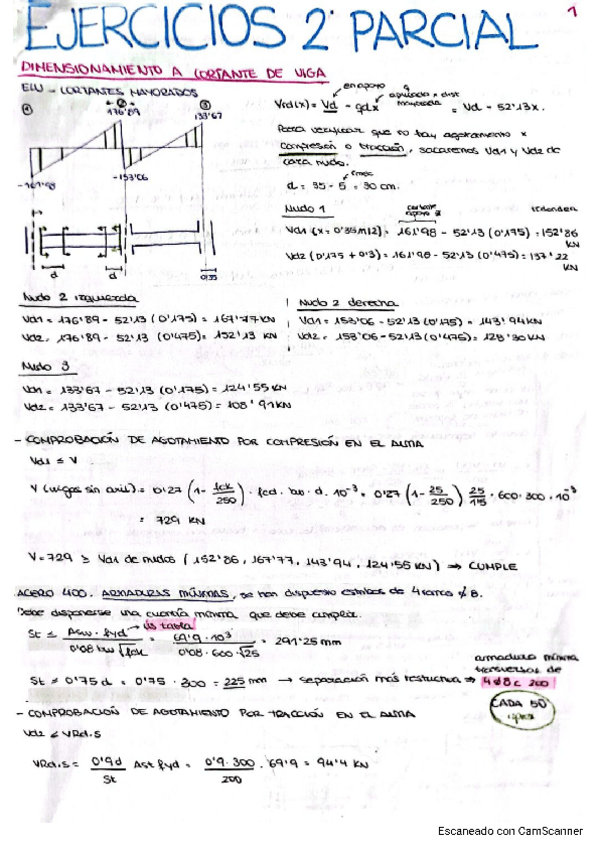 1
EJERCICIOS 2º PARCIAL
DIMENSIONAMIENTO A CORTANTE DE VIGA
ELU - CORTANTES MAYORADOS
1 2 3
176'89
133'67
-161'98
-153'06
d d 0'35
en apoyo
mayorada
Vrd(x) = Vd - qd.x = Vd - 52'13x.
Para verificar que no hay agotamiento x
compresión o tracción, sacaremos Vd1 y Vd2 de
cada nudo.
rmec
d = 35 - 5 = 30 cm.
Nudo 1
cortante
apoyo
Vd1 (x = 0'35m/2) = 161'98 - 52'13 (0'175) = 152'86
KN
Vd2 (0'175 + 0'3) = 161'98 - 52'13 (0'475) = 137'22
KN
Nudo 2 izquierda
Vd1 = 176'89 - 52'13 (0'175) = 167'77 KN
Vd2 = 176'89 - 52'13 (0'475) = 152'13 KN
Nudo 2 derecha
Vd1 = 153'06 - 52'13 (0'175) = 143'94 KN
Vd2 = 153'06 - 52'13 (0'475) = 128'30 KN
Nudo 3
Vd1 = 133'67 - 52'13 (0'175) = 124'55 KN
Vd2 = 133'67 - 52'13 (0'475) = 108'91 KN
- COMPROBACIÓN DE AGOTAMIENTO POR COMPRESIÓN EN EL ALMA
Vd1 ≤ V
V (vigas sin axil) = 0'27 (1 - fck/250) · fcd · bw · d · 10⁻³ = 0'27 (1 - 25/250) 25/1'5 · 600 · 300 · 10⁻³
= 729 KN
V = 729 ≥ Vd1 de nudos (152'86, 167'77, 143'94, 124'55 KN) ⇒ CUMPLE
ACERO 400. ARMADURAS MÍNIMAS, se han dispuesto estribos de 4 ramas ø 8.
Debe disponerse una cuantía mínima que debe cumplir.
tabla
St ≤ Asw · fyd / 0'08 bw √fck = 69'9 · 10³ / 0'08 · 600 · √25 = 291'25 mm
St ≤ 0'75 d = 0'75 · 300 = 225 mm → separación más restrictiva ⇒
armadura mínima
transversal de
4 ø 8 c 200
CADA 50
- COMPROBACIÓN DE AGOTAMIENTO POR TRACCIÓN EN EL ALMA
Vd2 ≤ VRd,s
VRd,s = 0'9d / St Ast fyd = 0'9 · 300 / 200 · 69'9 = 94'4 KN
Escaneado con CamScanner